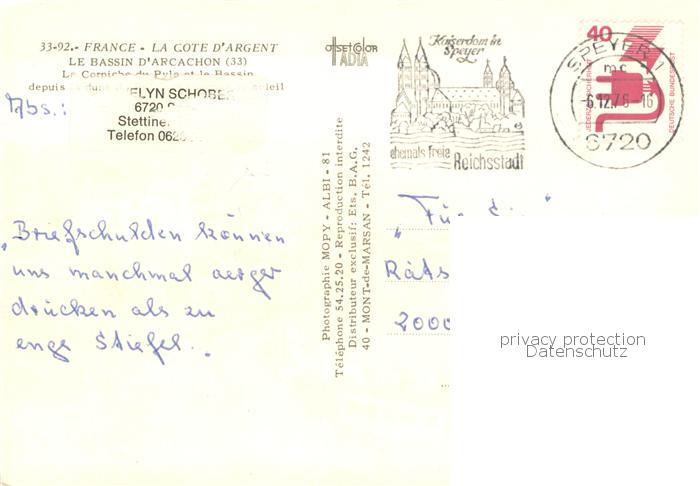 33-92.- FRANCE - LA COTE D'ARGENT
LE BASSIN D'ARCACHON (33)
La Corniche du Pyla et le Bassin
depuis la dune
soleil
Abs.:
ELYN SCHOBE
6720
Stettine
Telefon 062
OFFSET COLOR
ADIA
Kaiserdom in
Speyer
ehemals freie
Reichsstadt
SPEYER 1
-6.12.76-16
6720
40
JEDERZEIT SICHERHEIT
DEUTSCHE BUNDESPOST
Photographie MOPY - ALBI - 81
Téléphone 54.25.20 - Reproduction interdite
Distributeur exclusif: Ets. B.A.G.
40 - MONT-de-MARSAN - Tél. 1242
„Briefschulden können
uns manchmal aerger
drücken als zu
enge Stiefel.
Räts
2000
privacy protection
Datenschutz